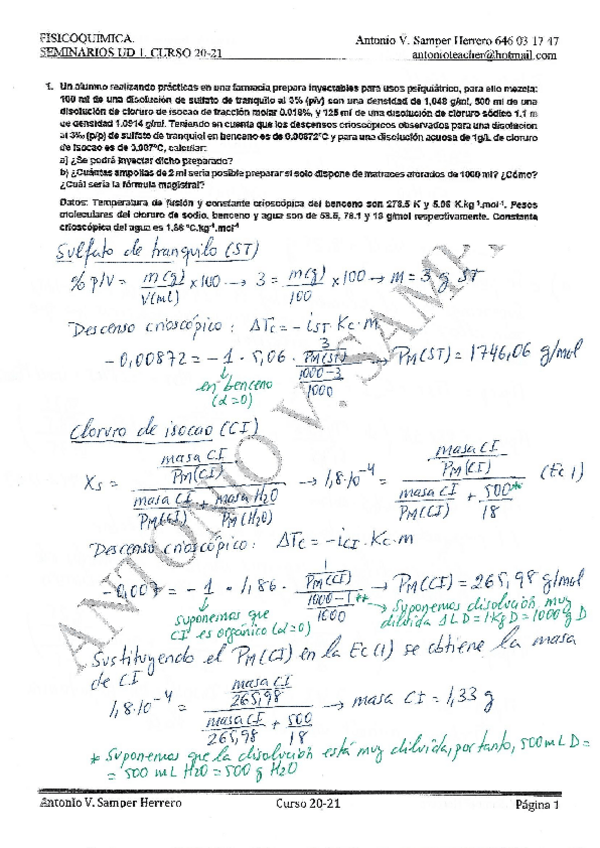 FISICOQUIMICA.
SEMINARIOS UD 1. CURSO 20-21
Antonio V. Samper Herrero 646 03 17 47
antonioteacher@hotmail.com
1. Un alumno realizando prácticas en una farmacia prepara inyectables para usos psiquiátrico, para ello mezcla:
100 ml de una disolución de sulfato de tranquilo al 3% (p/v) con una densidad de 1,048 g/ml, 500 ml de una
disolución de cloruro de isocao de fracción molar 0.018%, y 125 ml de una disolución de cloruro sódico 1.1 m
de densidad 1.0914 g/ml. Teniendo en cuenta que los descensos crioscópicos observados para una disolución
al 3‰ (p/p) de sulfato de tranquiol en benceno es de 0.00872°C y para una disolución acuosa de 1g/L de cloruro
de isocao es de 0.007°C, calcular:
a) ¿Se podrá inyectar dicho preparado?
b) ¿Cuántas ampollas de 2 ml sería posible preparar si solo dispone de matraces aforados de 1000 ml? ¿Cómo?
¿Cuál sería la fórmula magistral?
Datos: Temperatura de fusión y constante crioscópica del benceno son 278.5 K y 5.06 K.kg⁻¹.mol⁻¹. Pesos
moleculares del cloruro de sodio, benceno y agua son de 58.5, 78.1 y 18 g/mol respectivamente. Constante
crioscópica del agua es 1,86 °C.kg⁻¹.mol⁻¹
Sulfato de tranquilo (ST)
% P/V = m(g)/V(mL) × 100 → 3 = m(g)/100 × 100 → m = 3 g ST
Descenso crioscópico: ΔTc = - iST · Kc · m
-0,00872 = -1 · 5,06 · (3/PM(ST))/((1000-3)/1000) → PM(ST) = 1746,06 g/mol
en benceno
(α=0)
Cloruro de isocao (CI)
Xs = (masa CI/PM(CI))/(masa CI/PM(CI) + masa H2O/PM(H2O)) → 1,8·10⁻⁴ = (masa CI/PM(CI))/(masa CI/PM(CI) + 500*/18) (Ec 1)
Descenso crioscópico: ΔTc = - iCI · Kc · m
-0,007 = -1 · 1,86 · (1/PM(CI))/((1000-1**)/1000) → PM(CI) = 265,98 g/mol
suponemos que
CI es orgánico (α=0)
** Suponemos disolución muy
diluida 1 L D = 1 Kg D = 1000 g D
Sustituyendo el PM(CI) en la Ec(1) se obtiene la masa
de CI
1,8·10⁻⁴ = (masa CI/265,98)/(masa CI/265,98 + 500/18) → masa CI = 1,33 g
* Suponemos que la disolución está muy diluida, por tanto, 500 mL D =
= 500 mL H2O = 500 g H2O
ANTONIO V. SAMP
Antonio V. Samper Herrero
Curso 20-21
Página 1